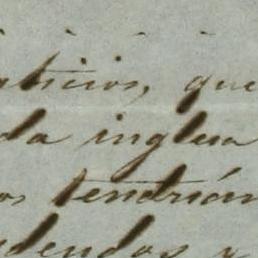 aticios, que
da inglesa
os tendrían
dendos y